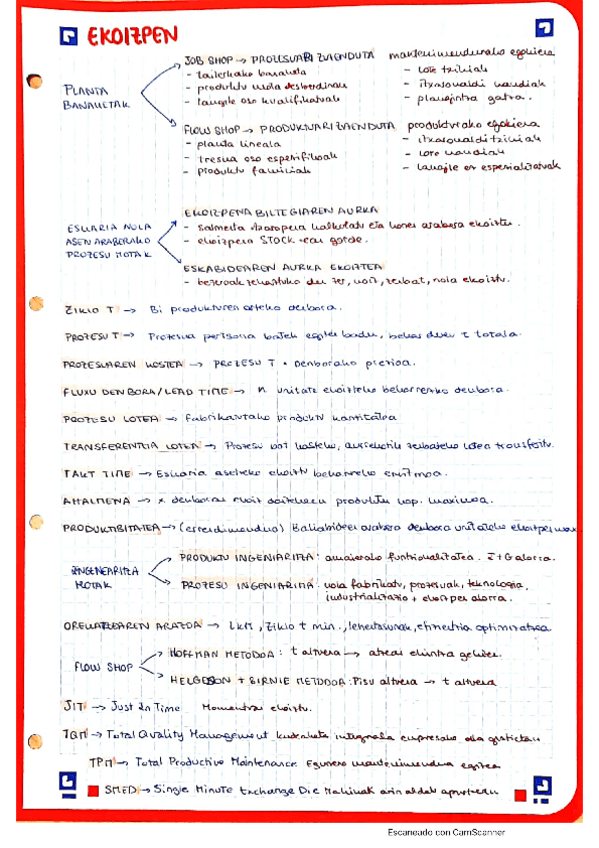 EKOIZPEN
JOB SHOP → PROZESUARI ZUZENDUTA mantenimendurako egokiera
- tailerkako banaketa - lote txikiak
PLANTA - produktu mota desberdinak - itxaronaldi handiak
BANAKETAK - langile oso kualifikatuak - plangintza gatza.
FLOW SHOP → PRODUKTUARI ZUZENDUTA produkturako egokiera
- planta lineala - itxaronaldi txikiak
- tresna oso espezifikoak - lote handiak
- produktu familiak - langile ez espezialitatuak
EKOIZPENA BILTEGIAREN AURKA
ESKARIA NOLA - salmenta itxaropena kalkulatu eta horren arabera ekoiztu.
ASEN ARABERAKO - ekoizpena STOCK-ean gorde.
PROZESU MOTAK
ESKABIDEAREN AURKA EKOIZTEA
- bezeroak zehaztuko du zer, noiz, zenbat, nola ekoiztu.
ZIKLO T → Bi produkturen arteko denbora.
PROZESU T → Prozesua pertsona batek egiten badu, behar duen t totala.
PROZESUAREN KOSTEA → PROZESU T • Denborako prezioa.
FLUXU DENBORA/LEAD TIME → n unitate ekoizteko beharrezko denbora.
PROZESU LOTEA → Fabrikatutako produktu kantitatea
TRANSFERENTZIA LOTEA → Prozesu bat hasteko, aurrekotik zenbateko lotea transferitu.
TAKT TIME → Eskaria asetzeko ekoiztu beharreko erritmoa.
AHALMENA → x denboran ekoitz daitekeen produktu kop. maximoa.
PRODUKTIBITATEA → (errendimendua) Baliabideen arabera denbora unitateko ekoizpen max.
INGENIARITZA PRODUKTU INGENIARITZA: amaierako funtzionalitatea. I+G alorra.
MOTAK PROZESU INGENIARITZA: nola fabrikatu, prozesuak, teknologia,
industrializazio + ekoizpen alorra.
OREKATZEAREN ARAZOA → LKM, Ziklo t min., lehentasunak, efizientzia optimizatzea
HOFFMAN METODOA: t altuena → atzeas ekintza gehien.
FLOW SHOP
HELGESON + BIRNIE METODOA: Pisu altuena → t altuena
JIT → Just In Time Momentuan ekoiztu.
TQM → Total Quality Management kudeaketa integrala enpresako alde guztietan
TPM → Total Productive Maintenance Eguneko mantenimendua egitea
SMED → Single Minute Exchange Die Makinak azin aldaketa
Escaneado con CamScanner